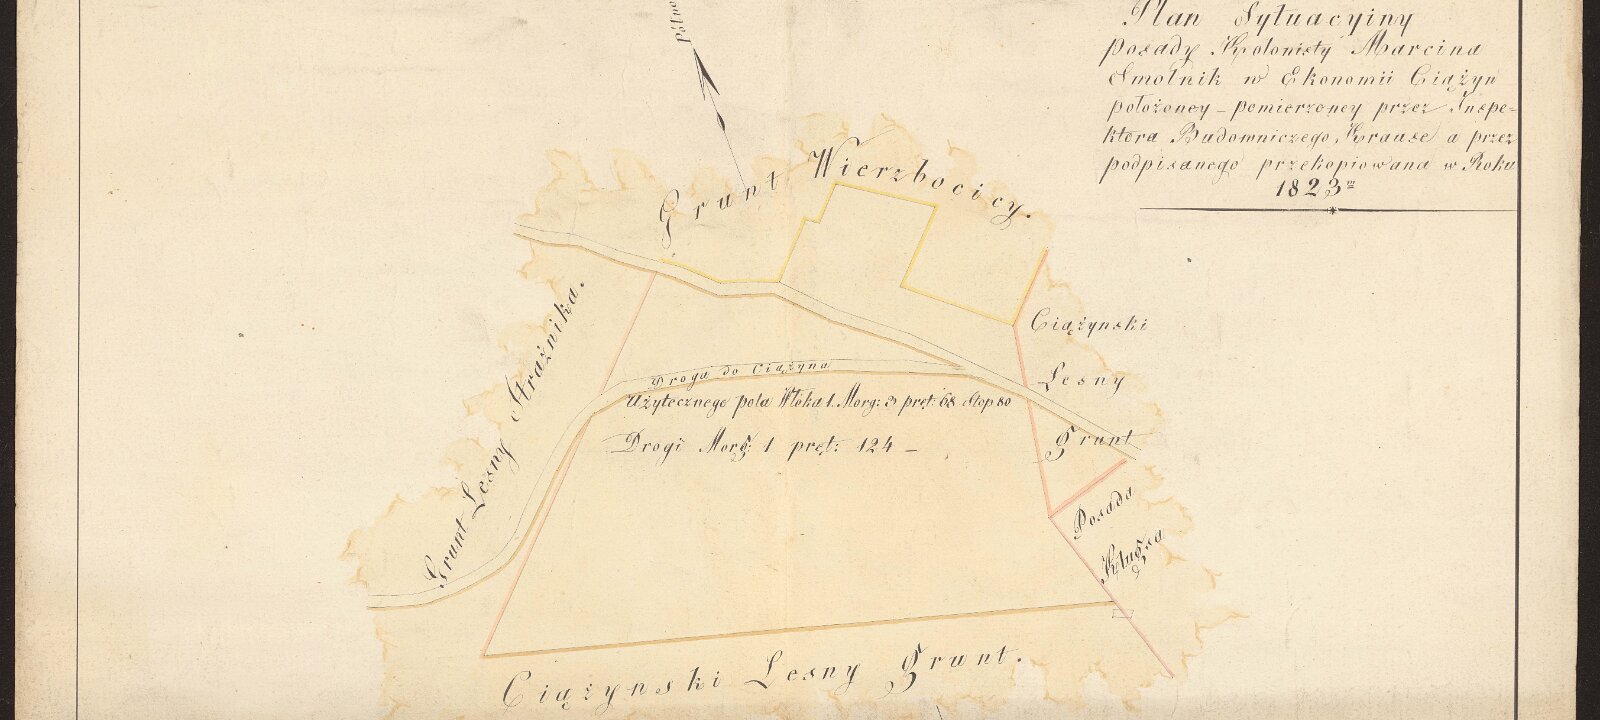 Plan Sytuacyiny
posady Kolonisty Marcina
Smolnik w Ekonomii Ciążyn
położoney – pomierzoney przez Inspe-
ktora Budowniczego Krause a przez
podpisanego przekopiowana w Roku
1823m
Grunt Wierzbocicy.
Grunt Lesny Strażnika.
Ciążynski
Lesny
grunt
Droga do Ciążyna
Użytecznego pola Włoka 1. Morg: 3 pręt: 68 stop 80
Drogi Morg: 1 pręt: 124 –
Posada
Ciążynski Lesny grunt.